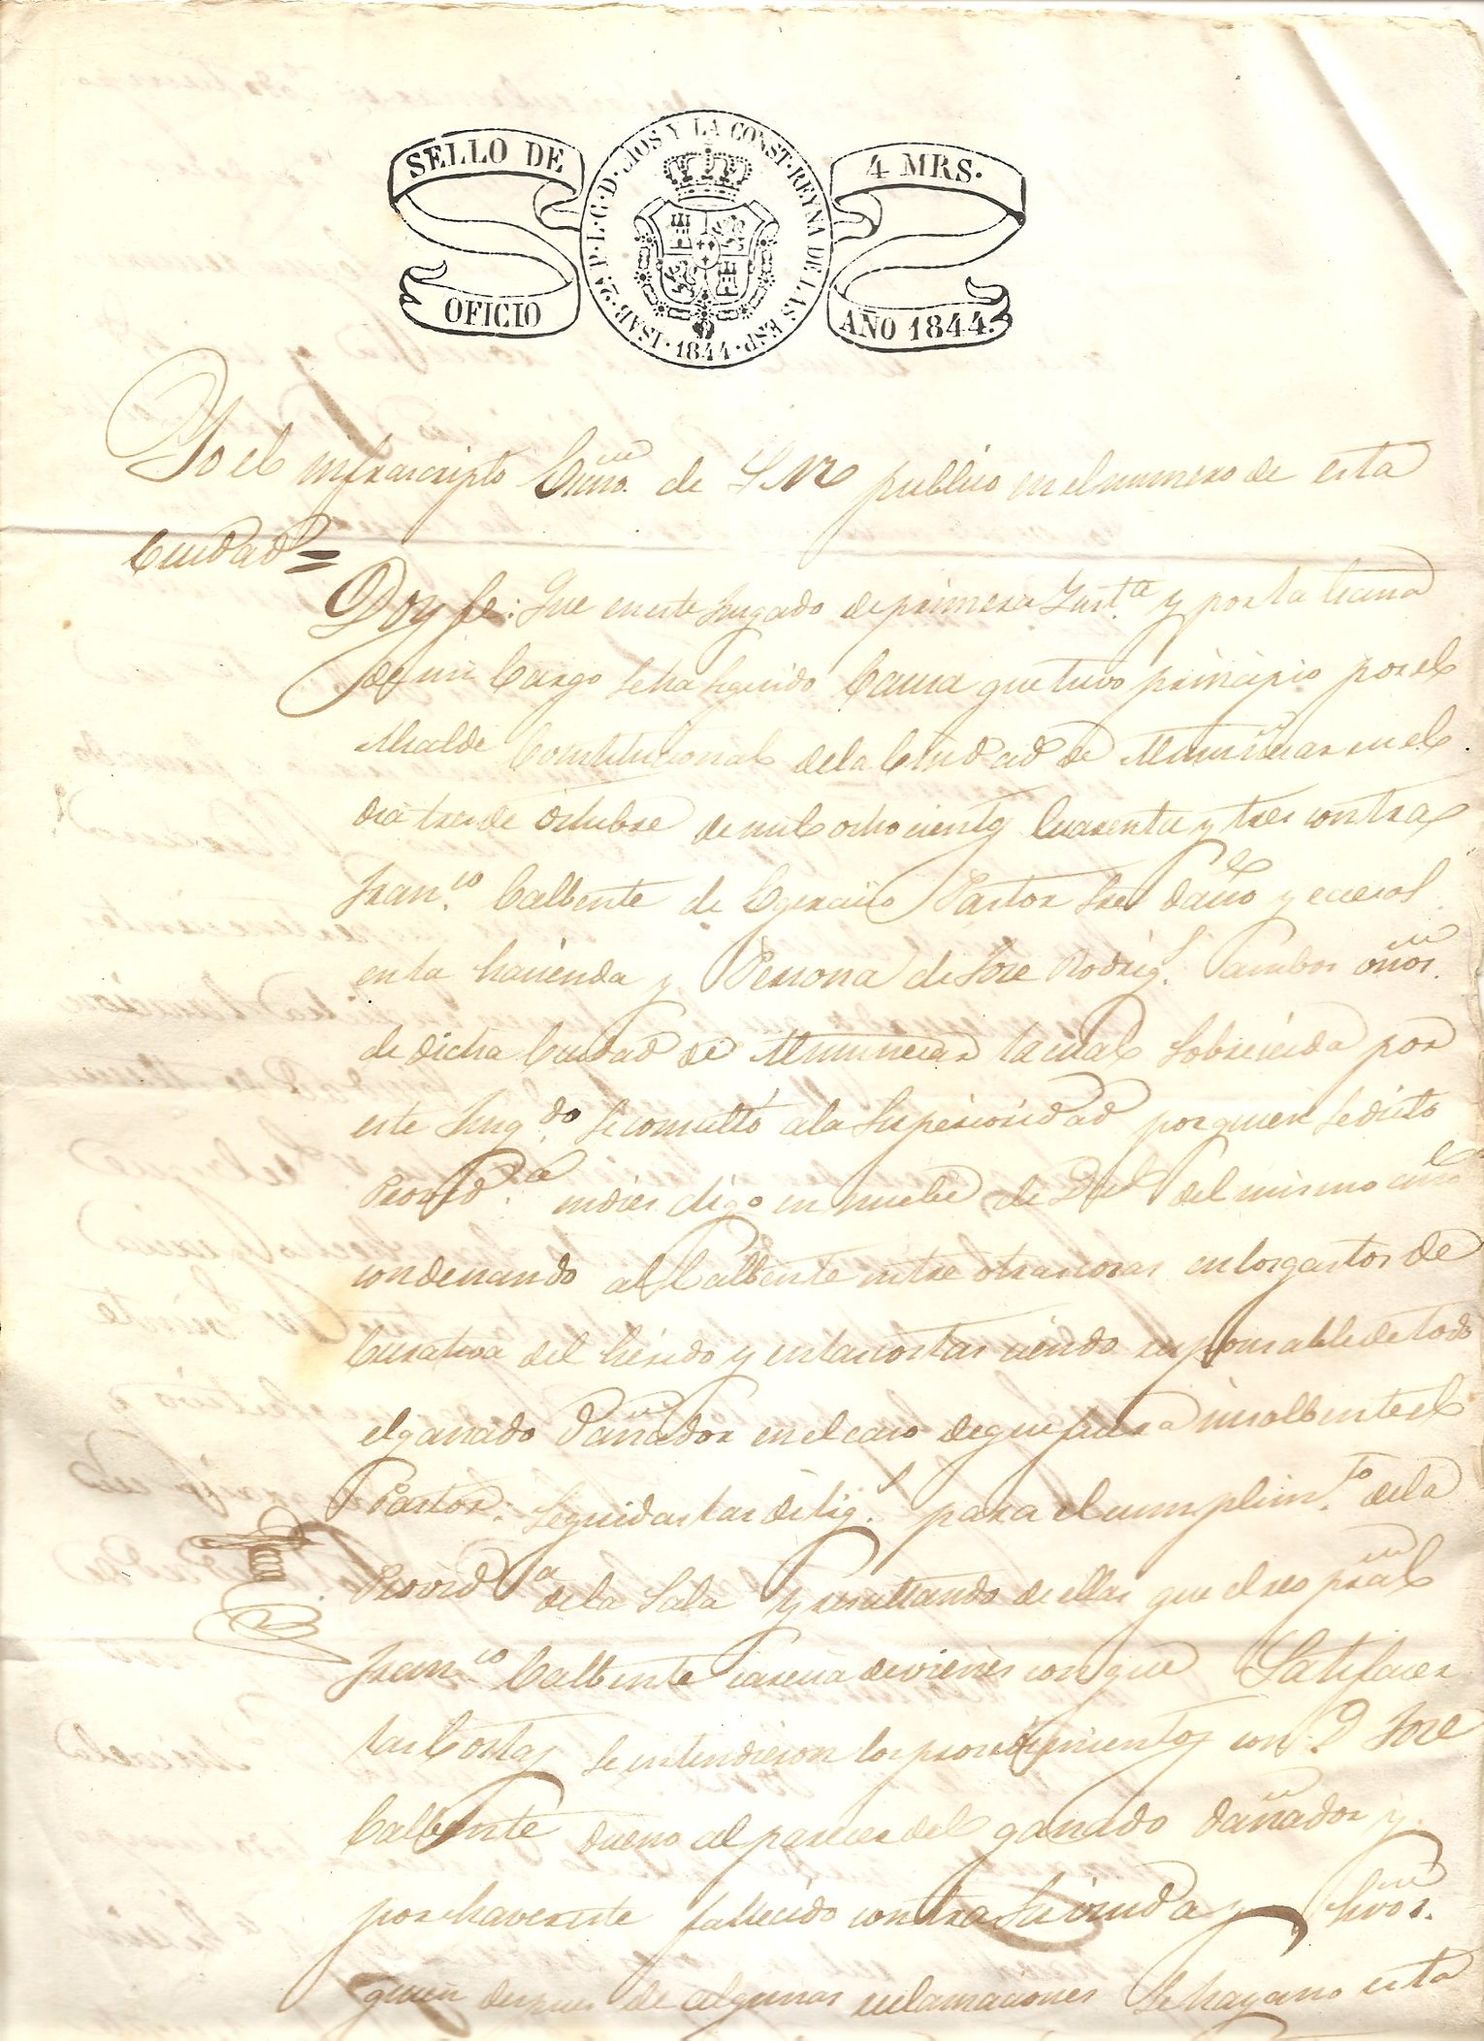 SELLO DE OFICIO
ISAB. 2ª P. L. G. D. DIOS Y LA CONST. REYNA DE LAS ESP. 1844.
4 MRS. AÑO 1844.
Yo el infrascripto Escno. de S M publico en el numero de esta
Ciudad =
Doy fe: Que en este Juzgado de primera Inst.ª y por la Escna
de mi Cargo se ha seguido Causa que tuvo principio por el
Alcalde Constitucional de la Ciudad de Almuñecar en el
dia tres de Octubre de mil ochocientos cuarenta y tres contra
Fran.co Calbente de Egercicio Pastor Sre daño y ecsesos
en la hacienda y Persona de Jose Rodrig.s ambos
de dicha Ciudad de Almuñecar la cual sobreseida por
este Juzg.do se consultó a la Superioridad por quien se dicto
Provid.ª en dies digo en nuebe de Dbe del mismo año
condenando al Calbente entre otras cosas en los gastos de
Curativa del herido y en las costas siendo responsable de todo
el ganado dañador en el caso de que fuera insolbente el
Pastor: Seguidas las dilig.s para el cumplim.to de la
Provid.ª de la Sala y resultando de ellas que el reo pral
Fran.co Calbente carecia de vienes con que Satisfacer
las Costas se entendieron los procedimientos con D Jose
Calbente dueño al parecer del ganado dañador y
por haver este fallecido contra su viuda y
quien despues de algunas reclamaciones se hayano esta